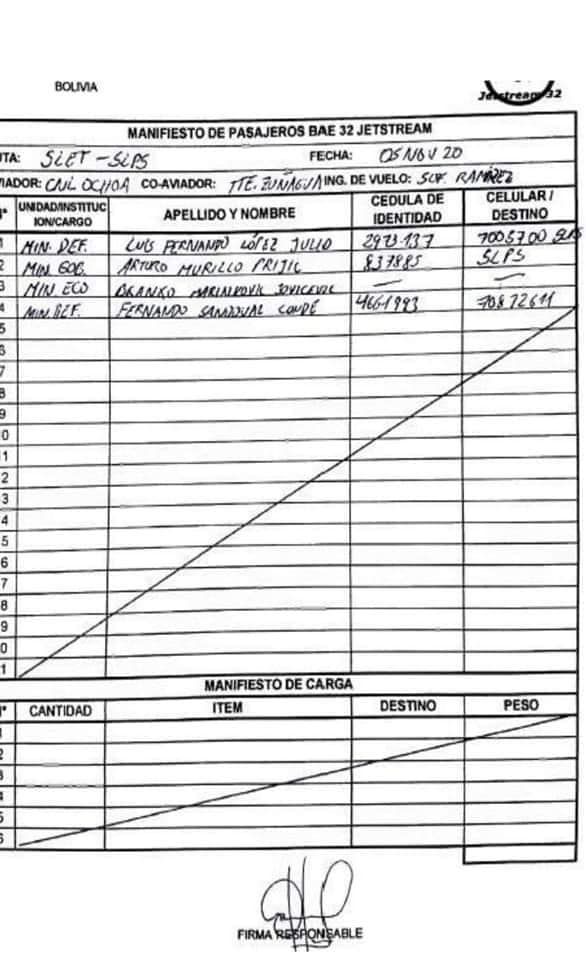 BOLIVIA
Jetstream 32
MANIFIESTO DE PASAJEROS BAE 32 JETSTREAM
UTA: SLET - SLPS FECHA: 05 NOV 20
VIADOR: CNL OCHOA CO-AVIADOR: TTE. ZUÑAGUA ING. DE VUELO: SOF. RAMÍREZ
N° UNIDAD/INSTITUC ION/CARGO APELLIDO Y NOMBRE CEDULA DE IDENTIDAD CELULAR / DESTINO
1 MIN. DEF. LUIS FERNANDO LÓPEZ JULIO 2973137 7005700 SLPS
2 MIN. GOB. ARTURO MURILLO PRIJIC 837885 SLPS
3 MIN ECO BRANKO MARINKOVIC JOVICEVIC — —
4 MIN. DEF. FERNANDO SANDOVAL CONDÉ 4661993 70872611
5
6
7
8
9
0
1
2
3
4
5
6
7
8
9
0
1
MANIFIESTO DE CARGA
N° CANTIDAD ITEM DESTINO PESO
1
2
3
4
5
6
FIRMA RESPONSABLE